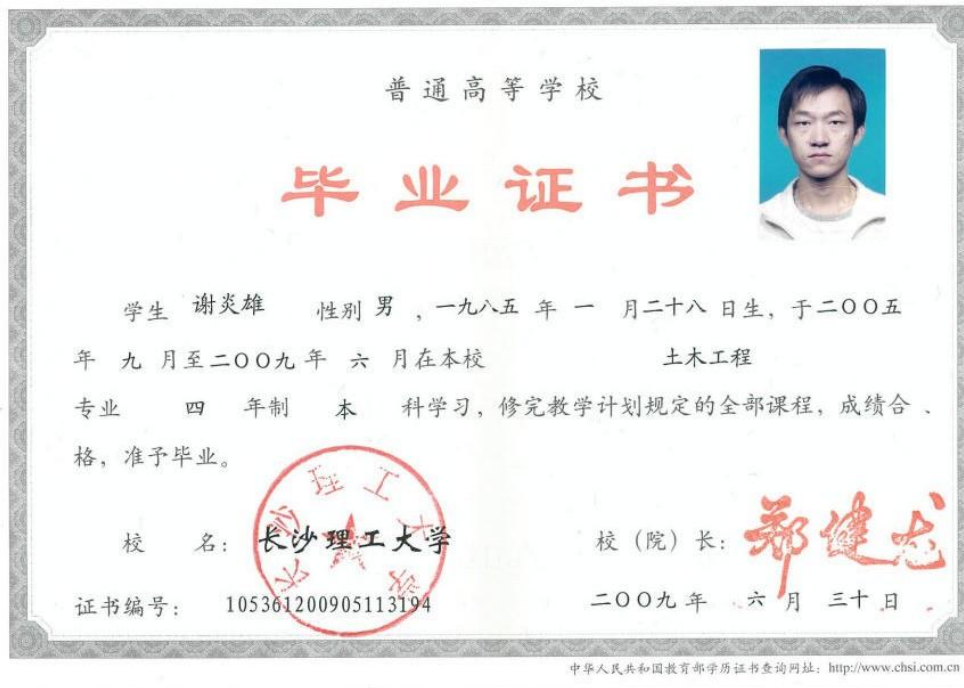 普通高等学校
毕业证书
学生 谢炎雄 性别 男 ，一九八五 年 一 月二十八 日生，于二〇〇五
年 九 月至二〇〇九 年 六 月在本校 土木工程
专业 四 年制 本 科学习，修完教学计划规定的全部课程，成绩合
格，准予毕业。
长沙理工大学
校 名： 长沙理工大学 校（院）长： 郑健龙
证书编号： 105361200905113194 二〇〇九 年 六 月 三十 日
中华人民共和国教育部学历证书查询网址：http://www.chsi.com.cn